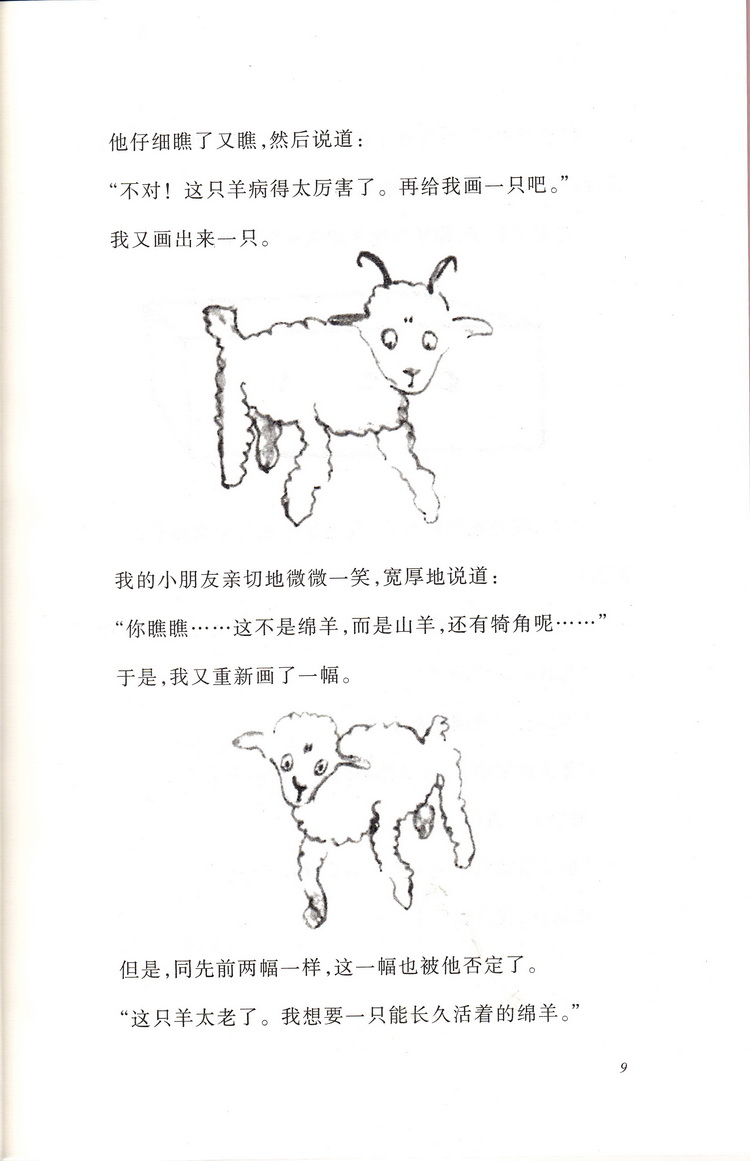 他仔细瞧了又瞧,然后说道:
“不对! 这只羊病得太厉害了。再给我画一只吧。”
我又画出来一只。
我的小朋友亲切地微微一笑,宽厚地说道:
“你瞧瞧……这不是绵羊,而是山羊,还有犄角呢……”
于是,我又重新画了一幅。
但是,同先前两幅一样,这一幅也被他否定了。
“这只羊太老了。我想要一只能长久活着的绵羊。”
9